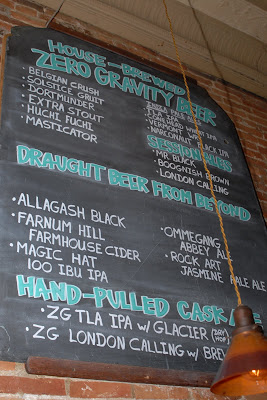 HOUSE-BREWED
ZERO GRAVITY BEER
• BELGIAN CRUSH
• SOLSTICE GRUIT
• DORTMUNDER
• EXTRA STOUT
• HUCHI FUCHI
• MASTICATOR
TLA IPA
• NARCONAUT BLACK IPA
SESSION ALES
• MR BLACK
• BOOGNISH BROWN
• LONDON CALLING
DRAUGHT BEER FROM BEYOND
• ALLAGASH BLACK
• FARNUM HILL
FARMHOUSE CIDER
• MAGIC HAT
100 IBU IPA
• OMMEGANG
ABBEY ALE
• ROCK ART
JASMINE PALE ALE
HAND-PULLED CASK ALE
• ZG TLA IPA W/ GLACIER (DRY HOP)
• ZG LONDON CALLING W/ BREW